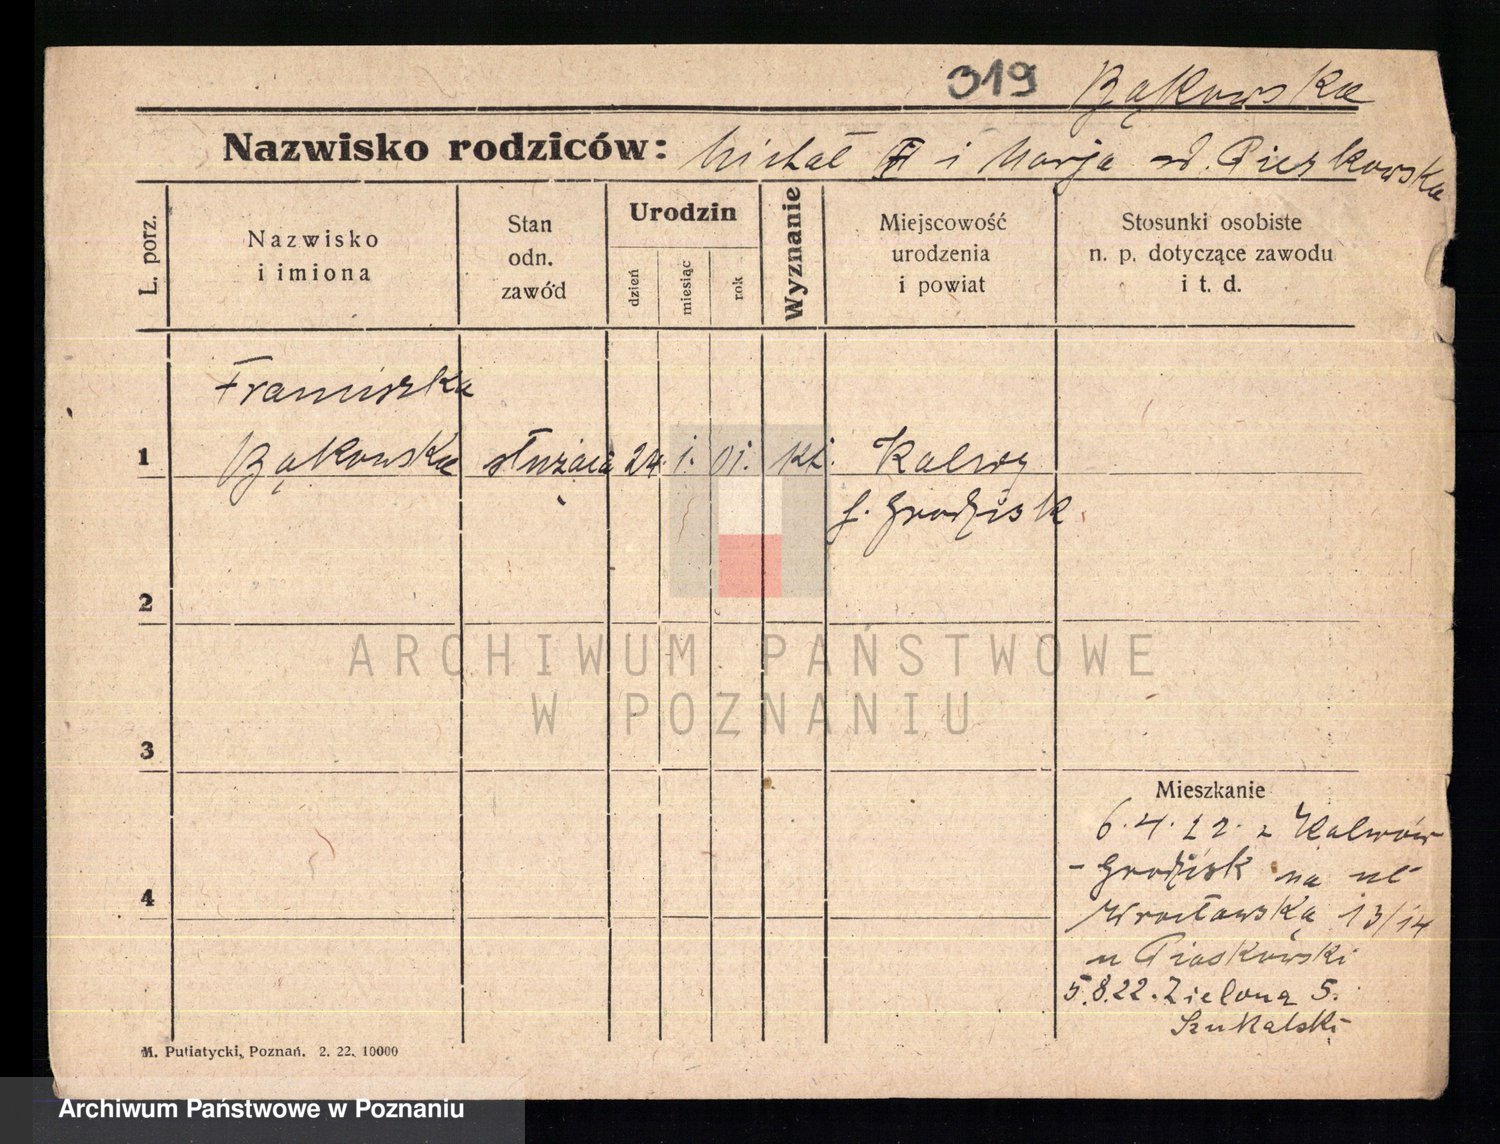 319 Bąkowska
Nazwisko rodziców: Michał i Marja
L. porz.
Nazwisko
i imiona
Stan
odn.
zawód
Urodzin
dzień
miesiąc
rok
Wyznanie
Miejscowość
urodzenia
i powiat
Stosunki osobiste
n. p. dotyczące zawodu
i t. d.
Franciszka
1 Bąkowska służąca 24. i. 01. kt. Kalwy
f. Grodzisk
2
3
4
ARCHIWUM PAŃSTWOWE
W POZNANIU
Mieszkanie
6.4.22. z Kalwów
- Grodzisk na ul
Wrocławską 13/14
u Piaskowski
5.8.22. Zielona 5.
Szukalski
M. Putiatycki, Poznań. 2. 22. 10000
Archiwum Państwowe w Poznaniu